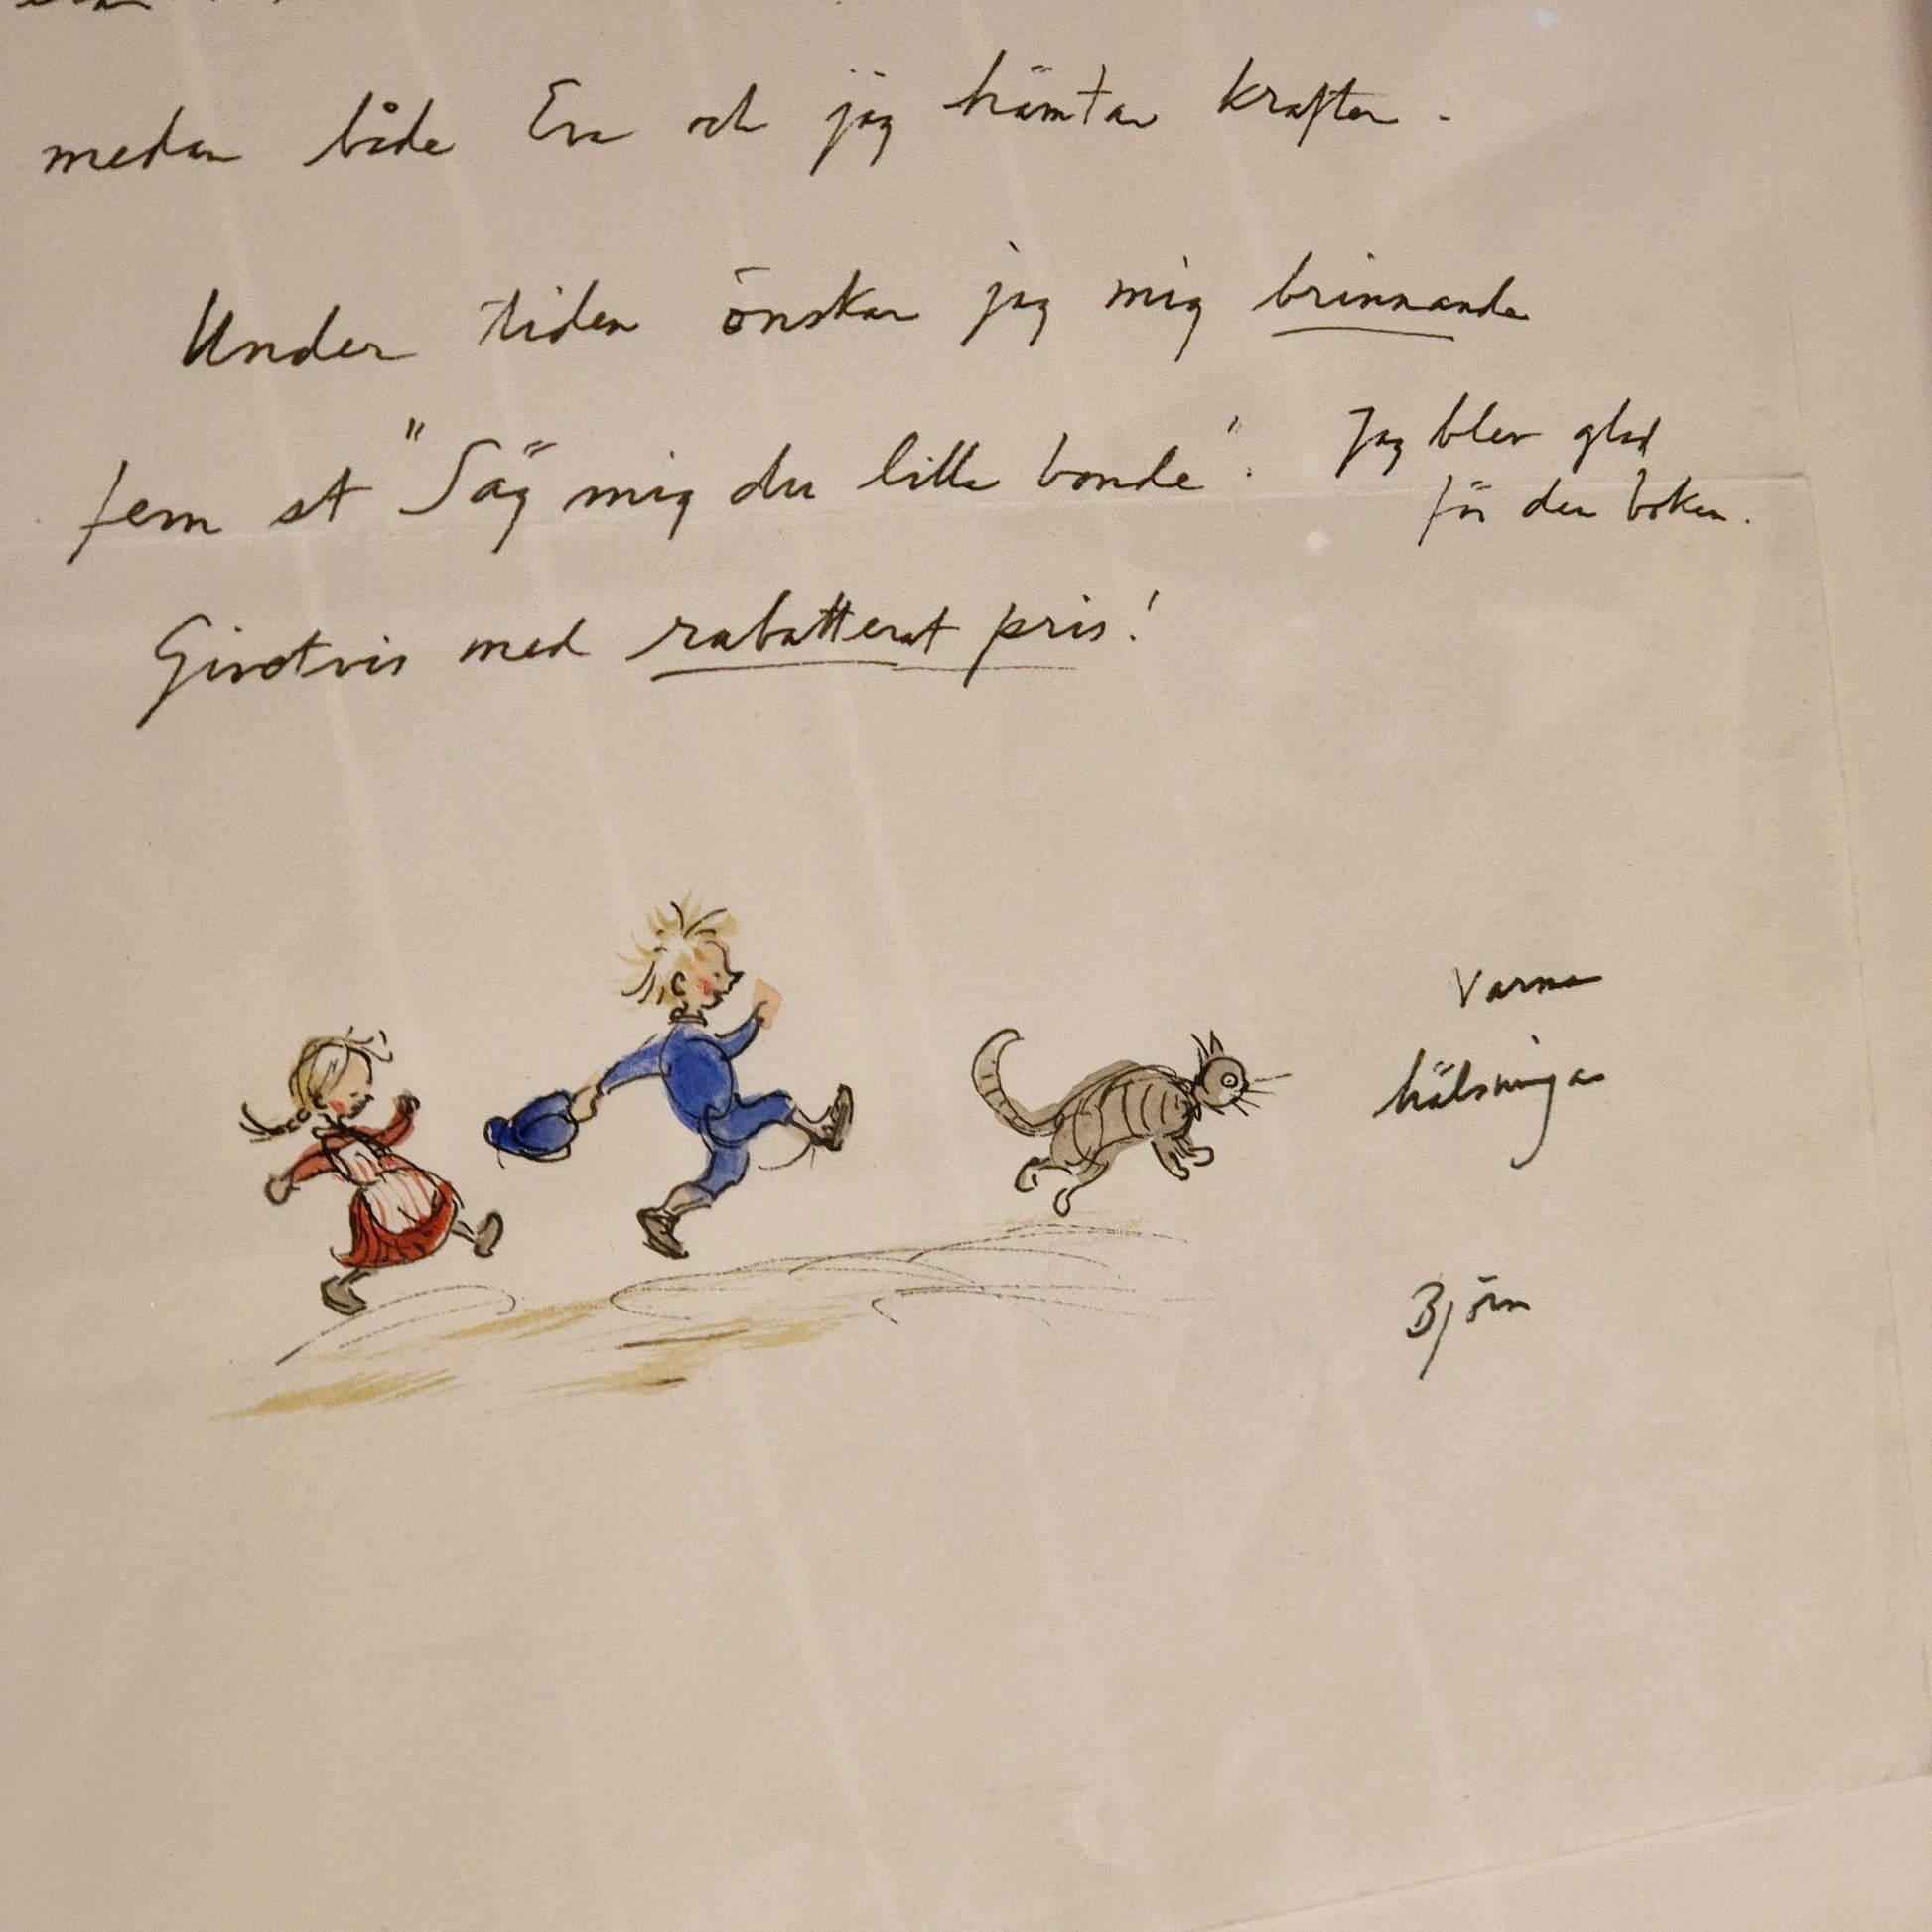 medan både Eva och jag hämtar krafter.
Under tiden önskar jag mig brinnande
fem st "Säg mig du lilla bonde". Jag blev glad
för den boken.
Givetvis med rabatterat pris!
Varma
hälsningar
Björn